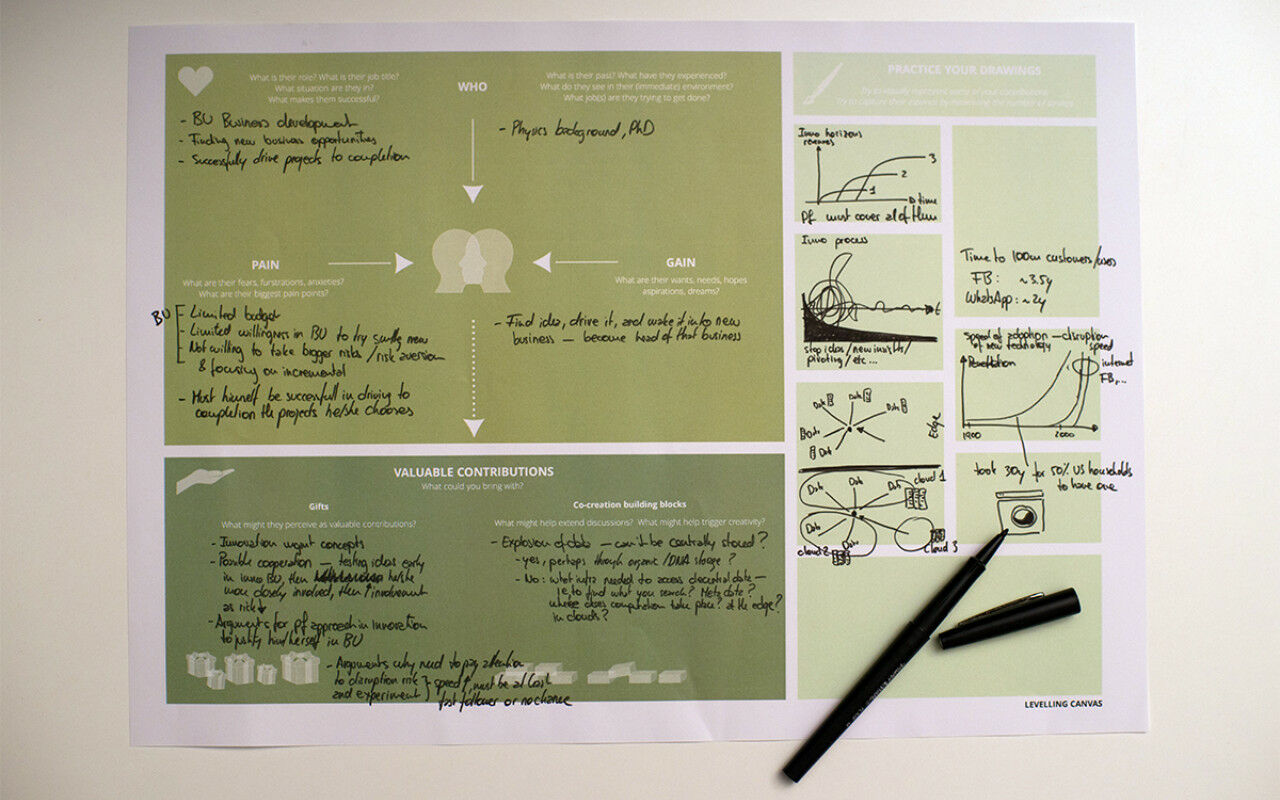 What is their role? What is their job title?
What situation are they in?
What makes them successful?
WHO
What is their past? What have they experienced?
What do they see in their (immediate) environment?
What job(s) are they trying to get done?
- BU Business development
- Finding new business opportunities
- Successfully drive projects to completion
- Physics background, PhD
PAIN
What are their fears, furstrations, anxieties?
What are their biggest pain points?
GAIN
What are their wants, needs, hopes
aspirations, dreams?
BU
- Limited budget
- Limited willingness in BU to try smthg new
- Not willing to take bigger risks / risk aversion
& focusing on incremental
- Must himself be successful in driving to
completion the projects he/she chooses
- Find idea, drive it, and make it into new
business — become head of that business
VALUABLE CONTRIBUTIONS
What could you bring with?
Gifts
What might they perceive as valuable contributions?
- Innovation mgmt concepts
- Possible cooperation — testing ideas early
in Inno BU, then he/she
more closely involved, then ↑ involvement
as risk ↓
- Arguments for pf approach in innovation
to justify him/herself in BU
- Arguments why need to pay attention
to disruption risk
and experiment } speed ↑, must be at least
fast follower or no chance
Co-creation building blocks
What might help extend discussions? What might help trigger creativity?
- Explosion of data — can't be centrally stored?
- yes, perhaps through organic/DNA storage?
- No: what infra needed to access decentral data —
ie to find what you search? Meta data?
where does computation take place? at the edge?
in clouds?
PRACTICE YOUR DRAWINGS
Try to visually represent some of your contributions.
Try to capture their essence by minimizing the number of strokes.
Inno horizons
revenues
3
2
1
time
Pf must cover all of them
Inno process
t
stop ideas / new insights /
pivoting / etc...
Data
Data
Data
Data
Data
Edge
Data
Data
Data
cloud 1
Data
Data
cloud 2
cloud 3
Time to 100m customers/users
FB: ~3.5y
WhatsApp: ~2y
speed of adoption — disruption
of new technology
speed
Penetration
internet
FB,...
1900
2000
took 30y for 50% US households
to have one
LEVELLING CANVAS